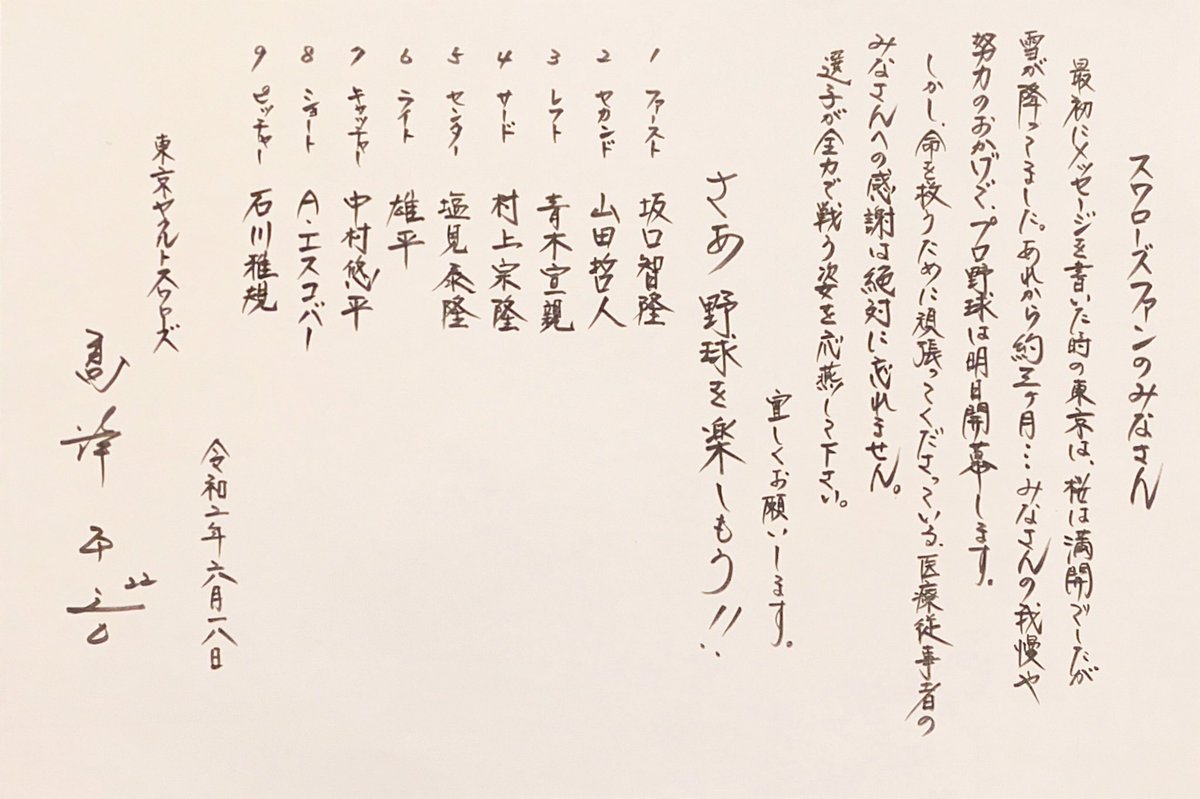 スワローズファンのみなさん
最初にメッセージを書いた時の東京は、桜は満開でしたが
雪が降ってました。あれから約三ヶ月…みなさんの我慢や
努力のおかげで、プロ野球は明日開幕します。
しかし、命を救うために頑張ってくださっている、医療従事者の
みなさんへの感謝は絶対に忘れません。
選手が全力で戦う姿を応燕して下さい。
宜しくお願いします。
さあ 野球を楽しもう!!
1 ファースト 坂口智隆
2 セカンド 山田哲人
3 レフト 青木宣親
4 サード 村上宗隆
5 センター 塩見泰隆
6 ライト 雄平
7 キャッチャー 中村悠平
8 ショート A・エスコバー
9 ピッチャー 石川雅規
令和二年六月一八日
東京ヤクルトスワローズ
高津
22